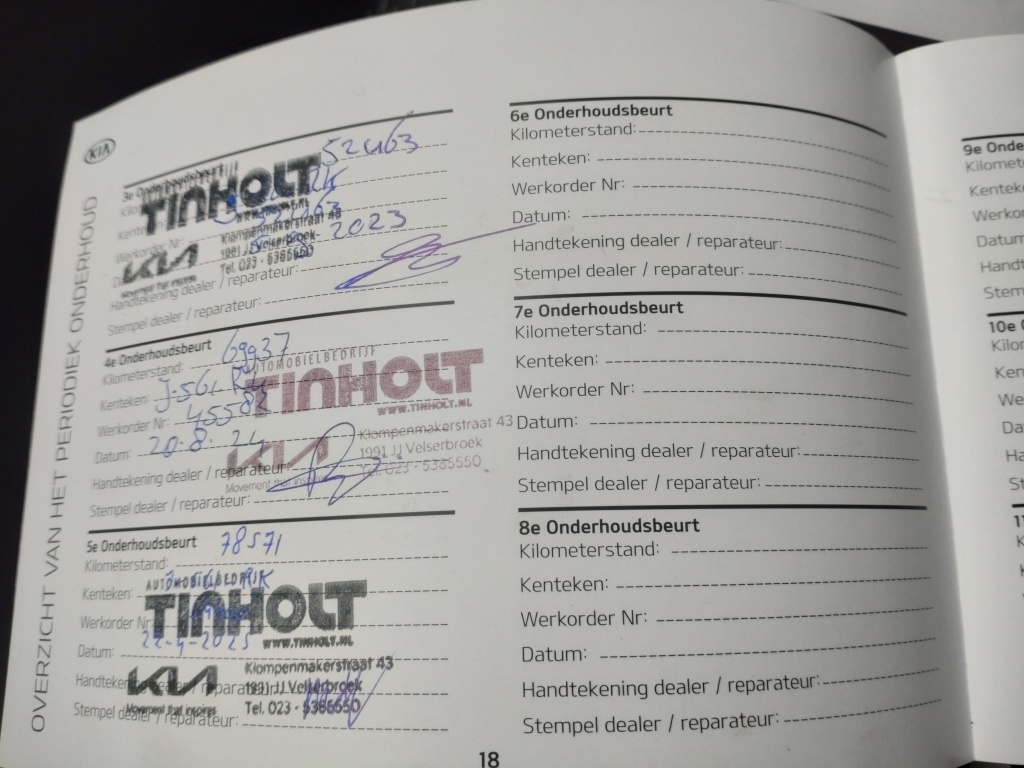 OVERZICHT VAN HET PERIODIEK ONDERHOUD
KIA
3e Onderhoudsbeurt
52463
TINHOLT
Kenteken:
Werkorder Nr:
2023
KIA
Movement that inspires
Klompenmakerstraat 43
1991 JJ Velserbroek
Tel. 023 - 5385550
Handtekening dealer / reparateur:
Stempel dealer / reparateur:
4e Onderhoudsbeurt
Kilometerstand: 69937
Kenteken:
Werkorder Nr: 45582
Datum: 20-8-24
AUTOMOBIELBEDRIJF
TINHOLT
WWW.TINHOLT.NL
KIA
Movement that inspires
Klompenmakerstraat 43
1991 JJ Velserbroek
Tel. 023 - 5385550
Handtekening dealer / reparateur:
Stempel dealer / reparateur:
5e Onderhoudsbeurt
78571
Kilometerstand:
Kenteken:
AUTOMOBIELBEDRIJF
TINHOLT
WWW.TINHOLT.NL
Werkorder Nr:
22-4-2025
Datum:
KIA
Movement that inspires
Klompenmakerstraat 43
1991 JJ Velserbroek
Tel. 023 - 5385550
Handtekening dealer / reparateur:
Stempel dealer / reparateur:
6e Onderhoudsbeurt
Kilometerstand:
Kenteken:
Werkorder Nr:
Datum:
Handtekening dealer / reparateur:
Stempel dealer / reparateur:
7e Onderhoudsbeurt
Kilometerstand:
Kenteken:
Werkorder Nr:
Datum:
Handtekening dealer / reparateur:
Stempel dealer / reparateur:
8e Onderhoudsbeurt
Kilometerstand:
Kenteken:
Werkorder Nr:
Datum:
Handtekening dealer / reparateur:
Stempel dealer / reparateur:
18
9e Onde
Kilomete
Kenteke
Werkor
Datum
Handt
Stem
10e
Kilo
Ken
We
Da
Ha
St